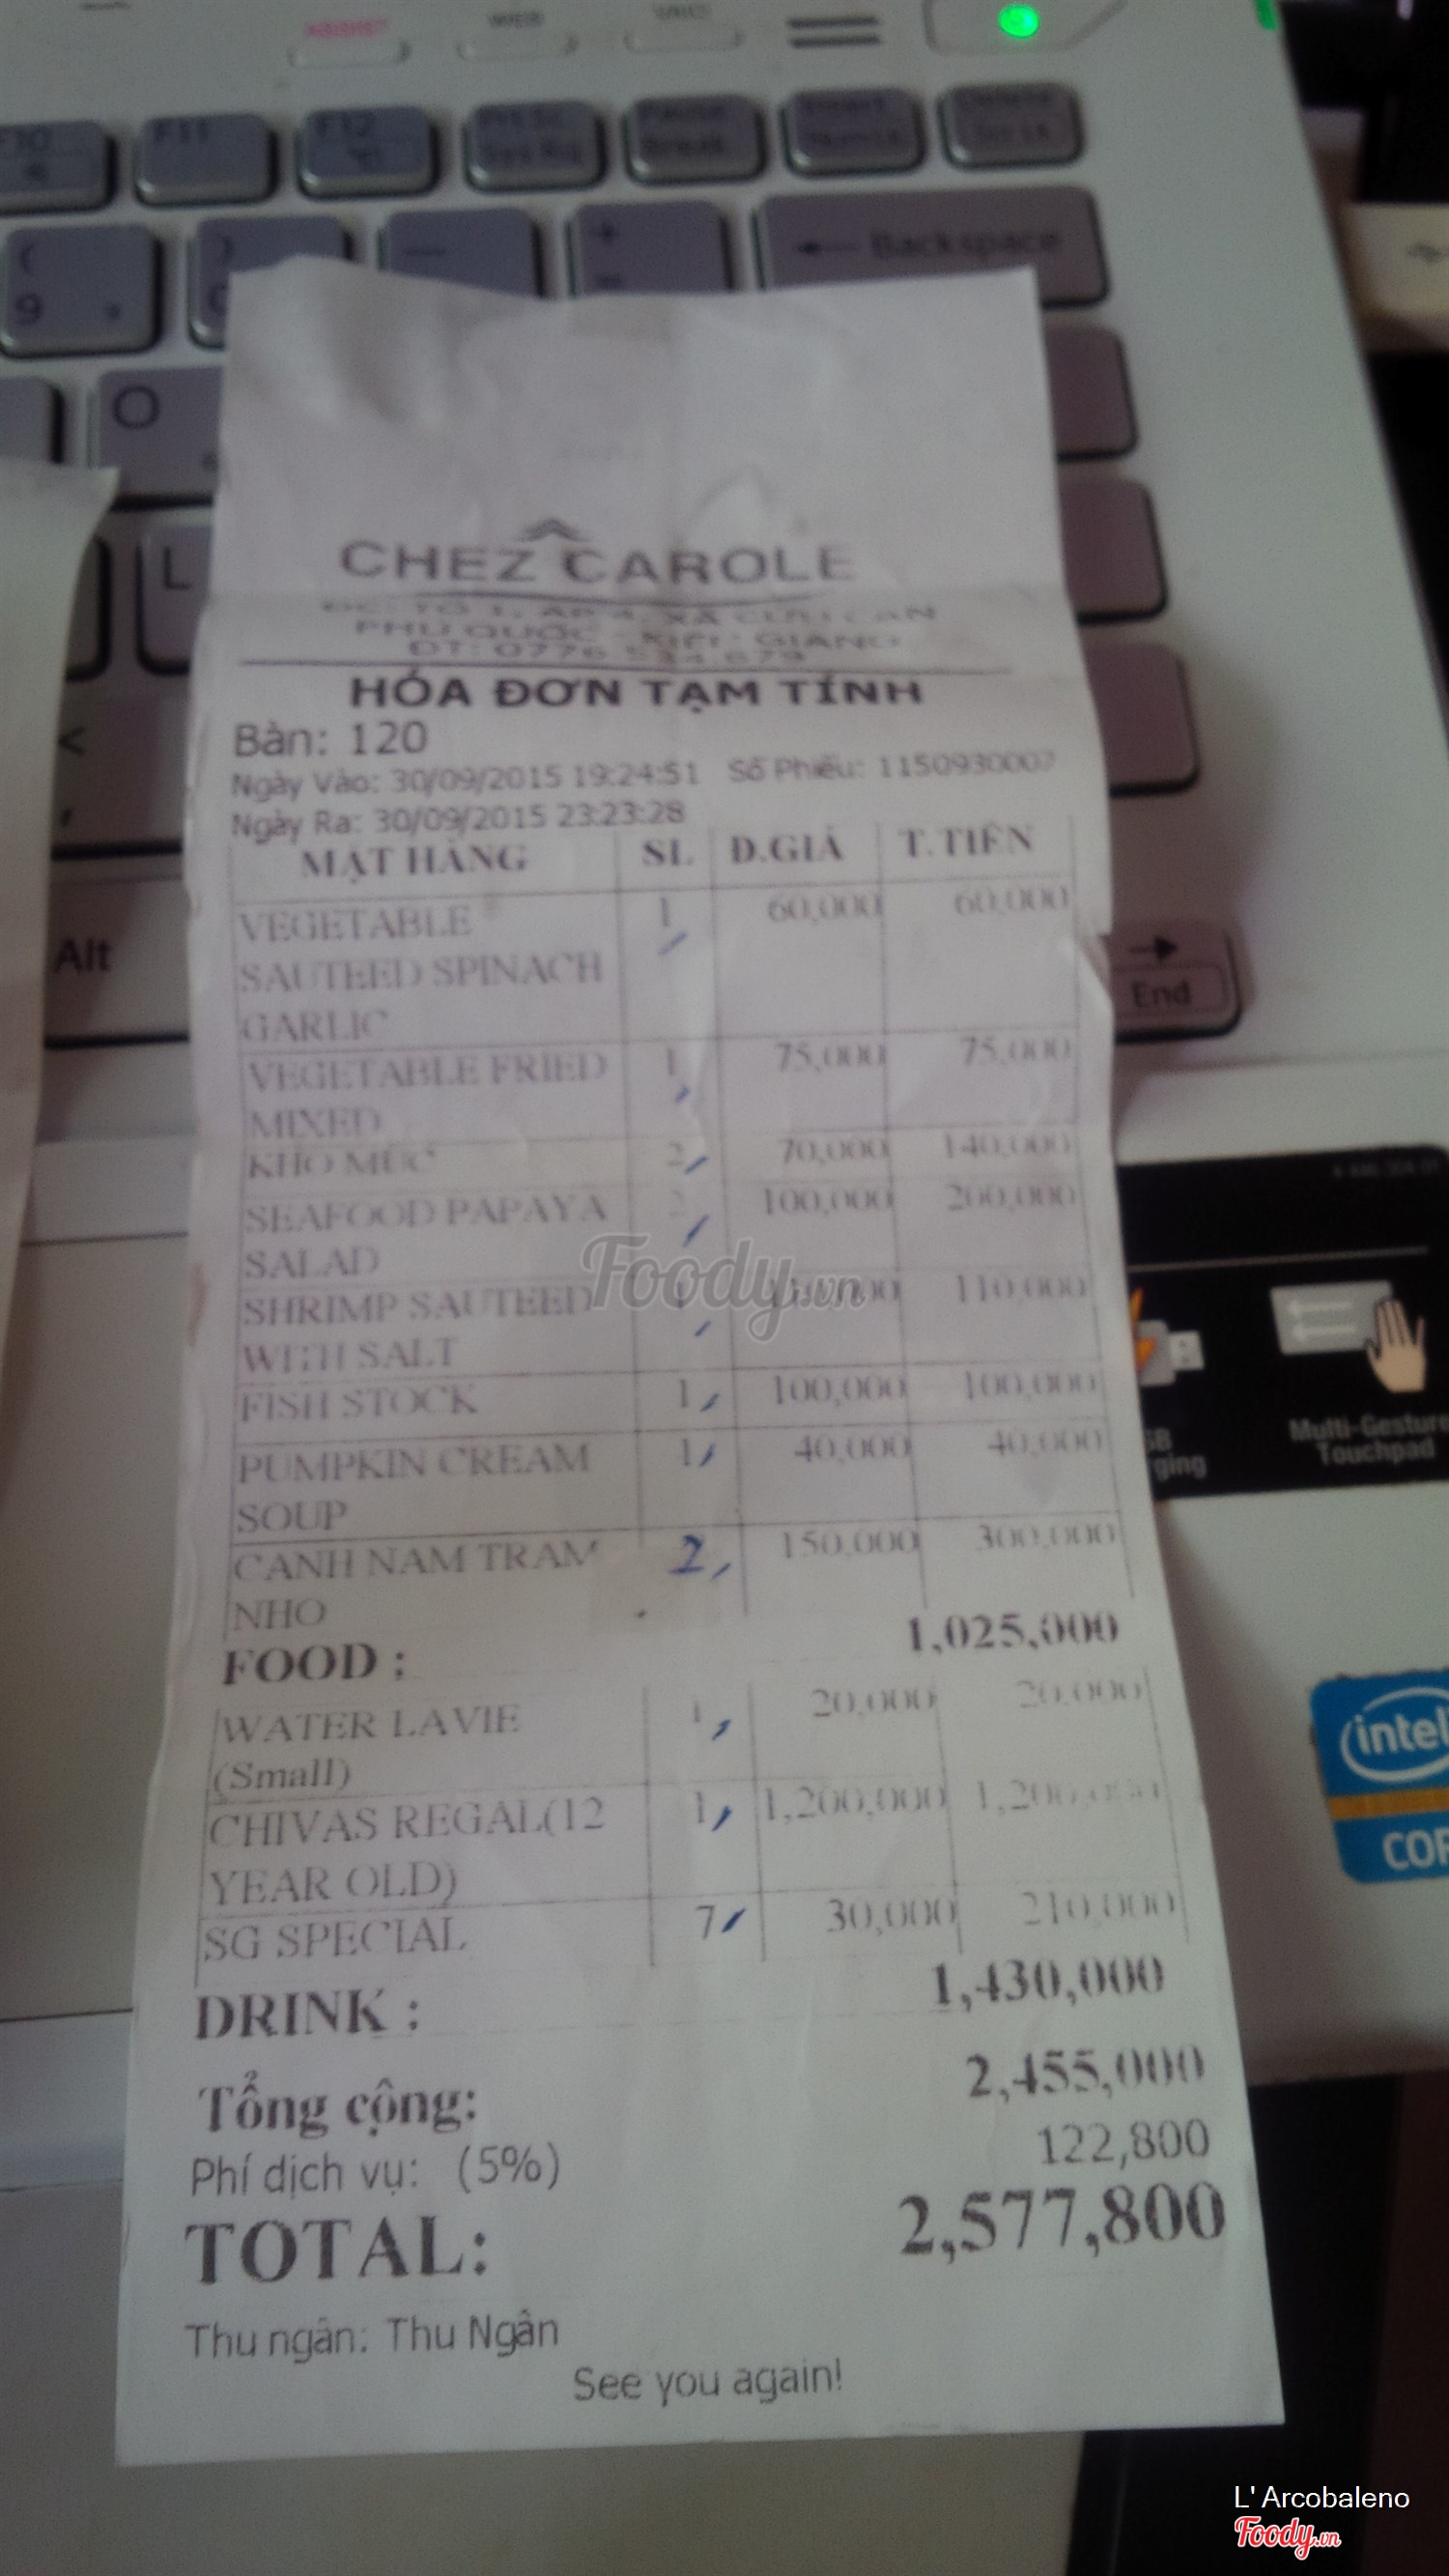 ASSIST
WEB
VAIO
F10
F11
F12
Prt Sc
Sys Rq
Pause
Break
Insert
Num Lk
Delete
Scr Lk
(
9
)
—
+
=
← Backspace
O
L
<
,
Alt
→
End
CHEZ CAROLE
ĐC: TỔ 1, ẤP 4, XÃ CỬA CẠN
PHÚ QUỐC - KIÊN GIANG
ĐT: 0776 534 679
HÓA ĐƠN TẠM TÍNH
Bàn: 120
Ngày Vào: 30/09/2015 19:24:51 Số Phiếu: 1150930007
Ngày Ra: 30/09/2015 23:23:28
MẶT HÀNG SL Đ.GIÁ T.TIỀN
VEGETABLE 1 60,000 60,000
SAUTEED SPINACH
GARLIC
VEGETABLE FRIED 1 75,000 75,000
MIXED
KHO MUC 2 70,000 140,000
SEAFOOD PAPAYA 2 100,000 200,000
SALAD
SHRIMP SAUTEED 1 110,000 110,000
WITH SALT
FISH STOCK 1 100,000 100,000
PUMPKIN CREAM 1 40,000 40,000
SOUP
CANH NAM TRAM 2 150,000 300,000
NHO
FOOD : 1,025,000
WATER LAVIE 1 20,000 20,000
(Small)
CHIVAS REGAL(12 1 1,200,000 1,200,000
YEAR OLD)
SG SPECIAL 7 30,000 210,000
DRINK : 1,430,000
Tổng cộng: 2,455,000
Phí dịch vụ: (5%) 122,800
TOTAL: 2,577,800
Thu ngân: Thu Ngân
See you again!
Foody.vn
Multi-Gesture
Touchpad
intel
COR
L' Arcobaleno
Foody.vn